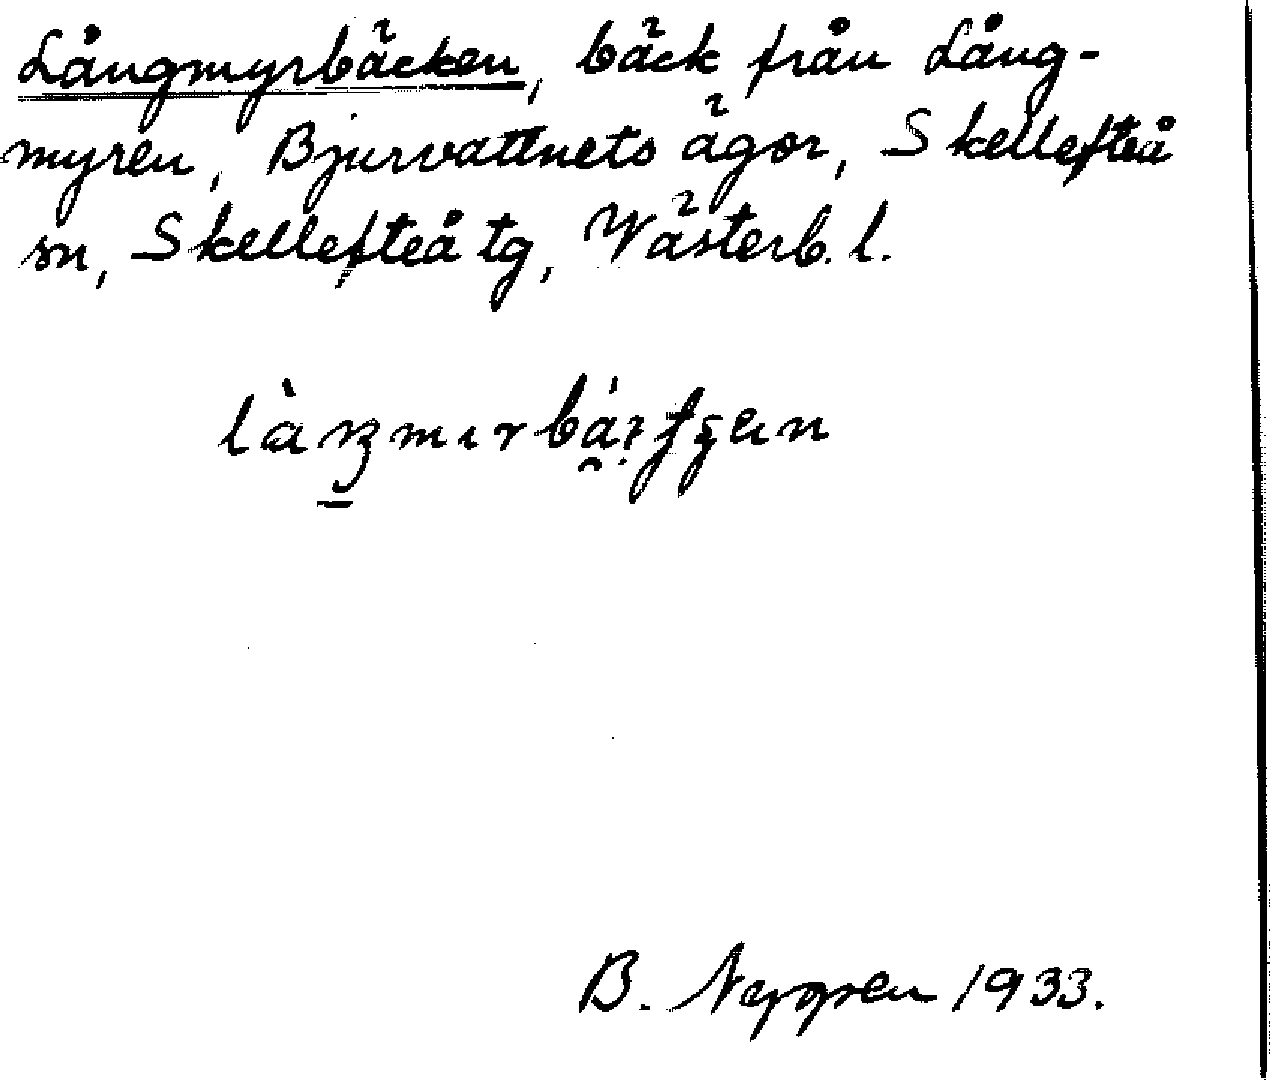 Långmyrbäcken, bäck från Lång-
myren, Bjurvattnets ägor, Skellefteå
sn, Skellefteå tg, Västerb. l.
B. Nygren 1933.